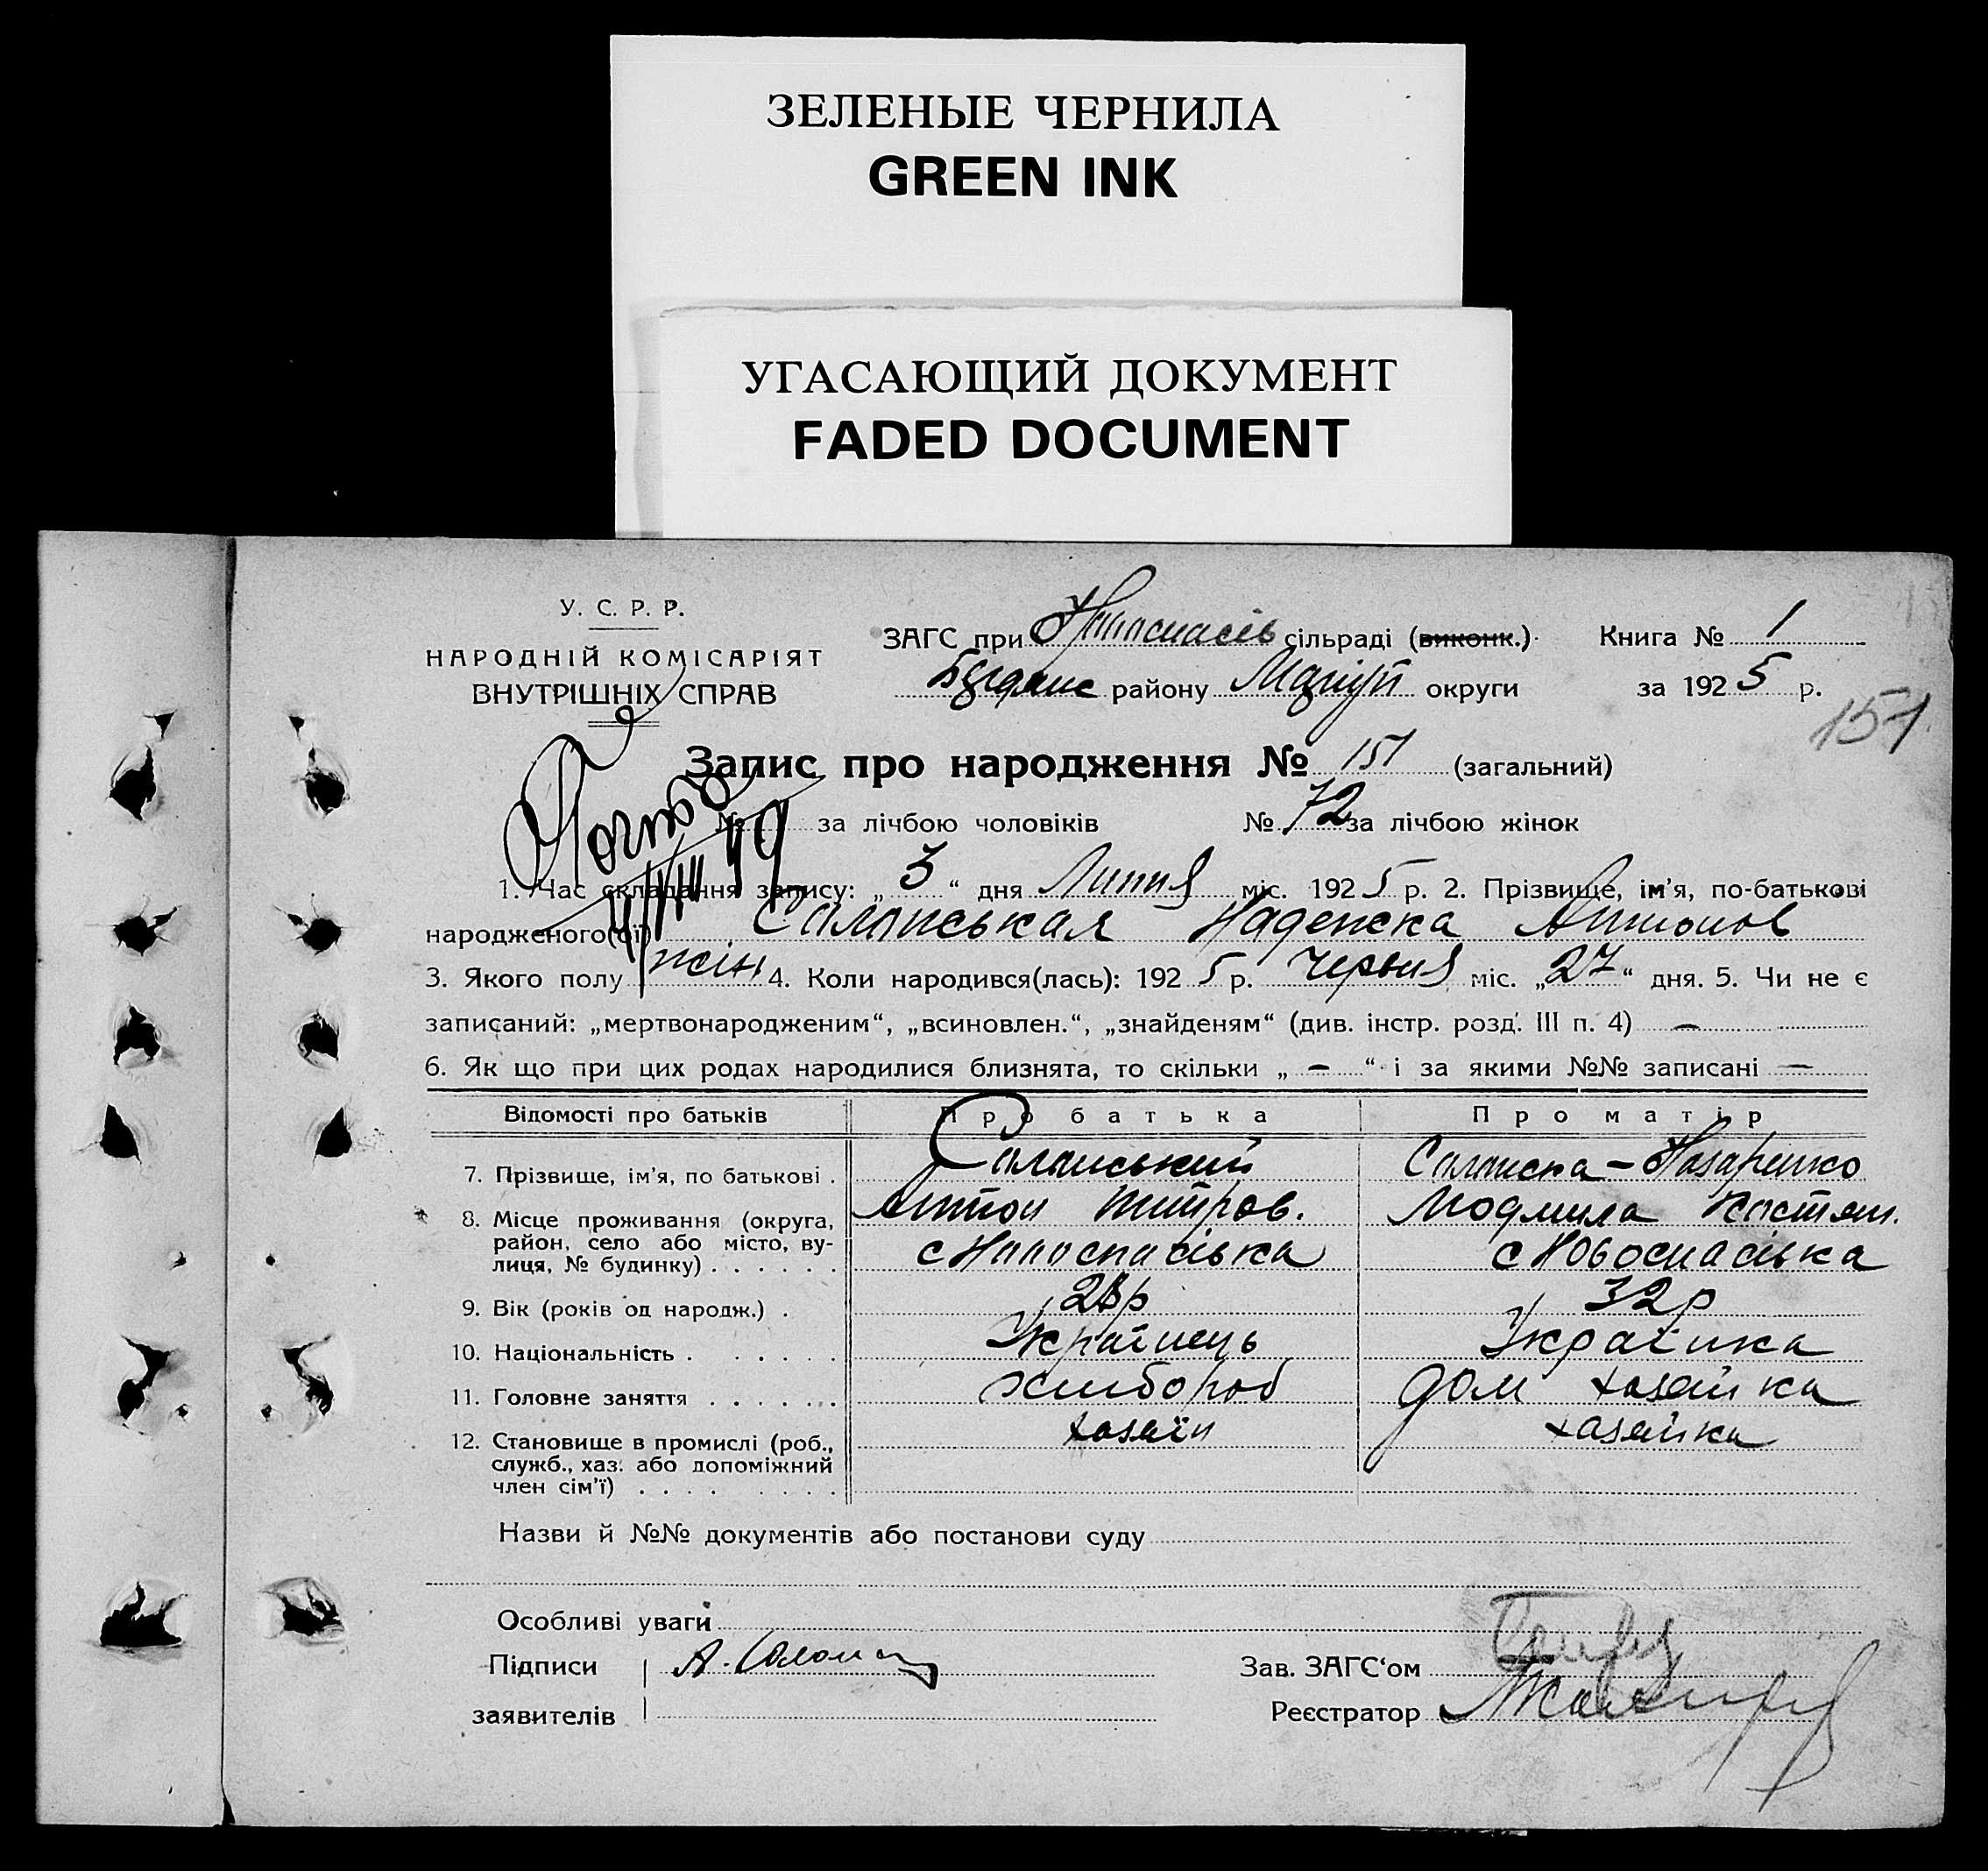 ЗЕЛЕНЫЕ ЧЕРНИЛА
GREEN INK
УГАСАЮЩИЙ ДОКУМЕНТ
FADED DOCUMENT
У. С. Р. Р.
НАРОДНІЙ КОМІСАРІЯТ
ВНУТРІШНІХ СПРАВ
ЗАГС при сільраді (виконк.)
Книга № 1
району Маріуп округи
за 1925 р.
151
Запис про народження № 151 (загальний)
№ за лічбою чоловіків № 72 за лічбою жінок
1. Час складання запису: „3“ дня Липня міс. 1925 р. 2. Прізвище, ім'я, по-батькові
народженого(ої) Надежка Антонов
3. Якого полу жін 4. Коли народився(лась): 1925 р. Червня міс. „27“ дня. 5. Чи не є
записаний: „мертвонародженим“, „всиновлен.“, „знайденям“ (див. інстр. розд. III п. 4) —
6. Як що при цих родах народилися близнята, то скільки „ — “ і за якими №№ записані —
Відомості про батьків
Про батька
Про матір
7. Прізвище, ім'я, по батькові .
Антон
Назаренко
Людмила Костян.
8. Місце проживання (округа,
район, село або місто, ву-
лиця, № будинку) . . . . . .
с Новоспасівка
с Новоспасівка
9. Вік (років од народж.) .
32р
10. Національність . . . . . .
Українець
Українка
11. Головне заняття . . . . . .
хлибороб
дом хазяйка
12. Становище в промислі (роб.,
служб., хаз. або допоміжний
член сім'ї) . . . . . . . .
хазяїн
хазяйка
Назви й №№ документів або постанови суду
Особливі уваги
Підписи
заявителів
Зав. ЗАГС'ом
Реєстратор